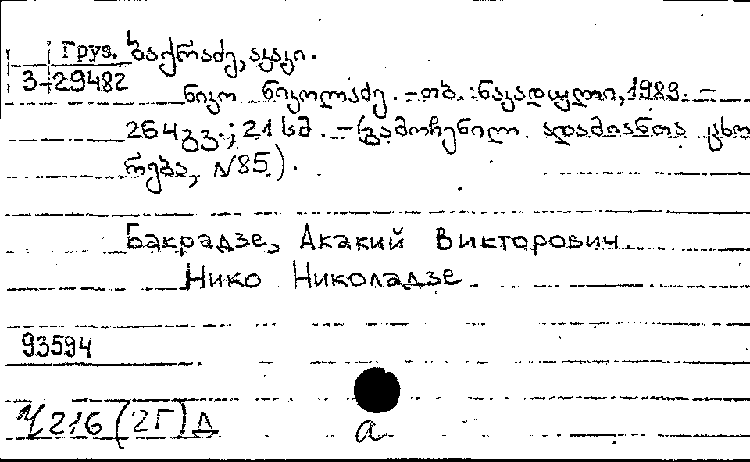 Груз. ბაქრაძე, აკაკი.
3-29482
ნიკო ნიკოლაძე. – თბ. : ნაკადული, 1989. –
264 გვ. ; 21 სმ. – (გამოჩენილ ადამიანთა ცხო
რება, N85).
Бакрадзе, Акакий Викторович
Нико Николадзе
93594
Ч216(2Г)Д
а